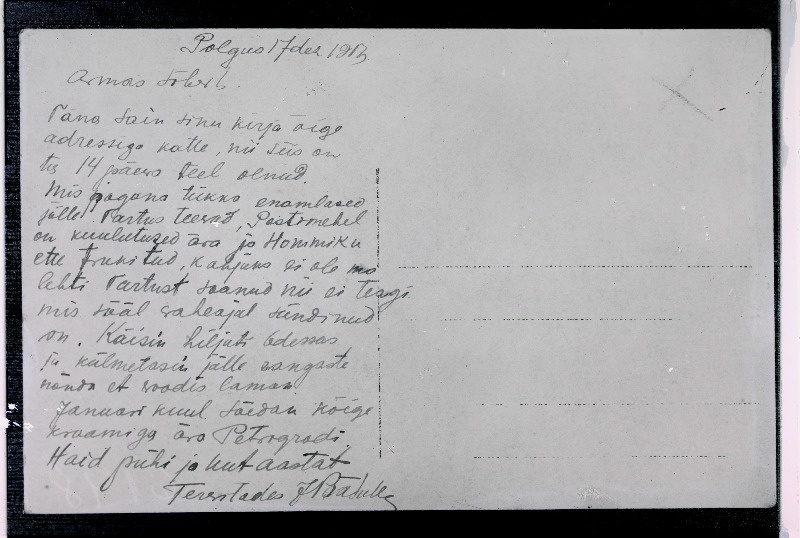 Polgus 17 dek 191
Armas sõber!
Täna sain sinu kirja õige
adressiga katte, nii siis on
ta 14 päewa teel olnud.
Mis pagana tükka enamlased
jälle Tartus teewad, Postimehel
on kuulutused ära ja Hommiku
ette trukitud, kahjuks ei ole ma
lehti Tartust saanud nii ei teagi
mis sääl waheajal sündinud
on. Käisin hiljuti Odessas
ja külmetasin jälle wangaste
nõnda et woodis laman.
Januari kuul sõedan kõige
kraamiga ära Petrogradi.
Haid pühi ja uut aastat
Terwitades J